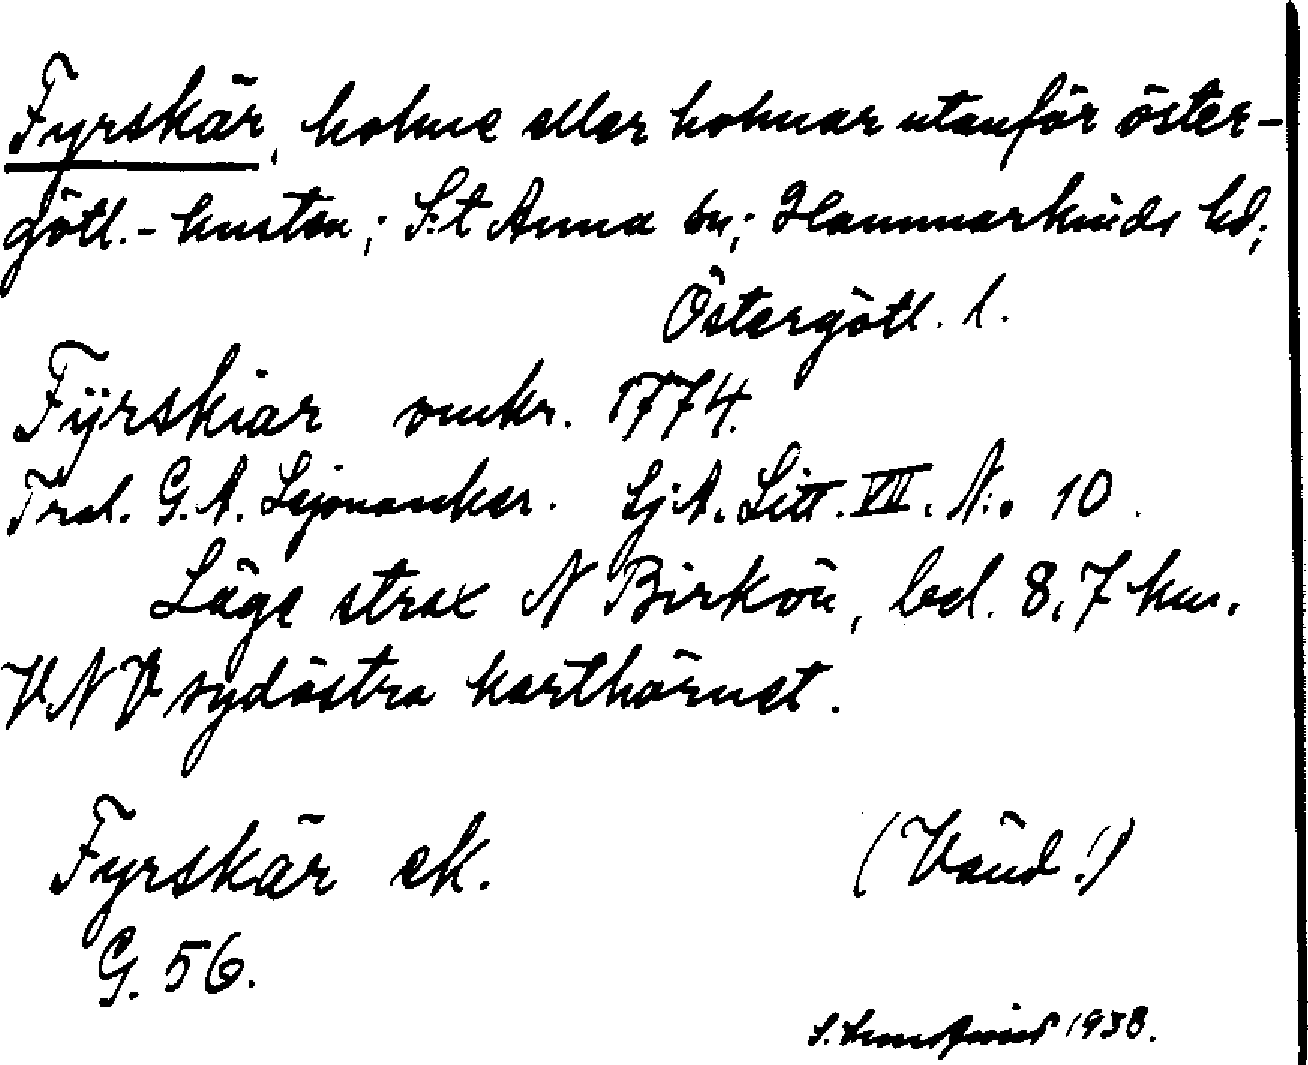 Fyrskär, holme eller holmar utanför öster-
götl.-kusten; S:t Anna sn; Hammarkinds hd;
Östergötl. l.
Fÿrskiär omkr. 1774.
Trol. G. A. Lejonancker. Sj:A. Litt. VII. N:o 10.
Läge strax N Birkön, bel. 8,7 km.
VNV sydöstra karthörnet.
Fyrskär ek.
(Vänd!)
G. 56.
S. 1938.